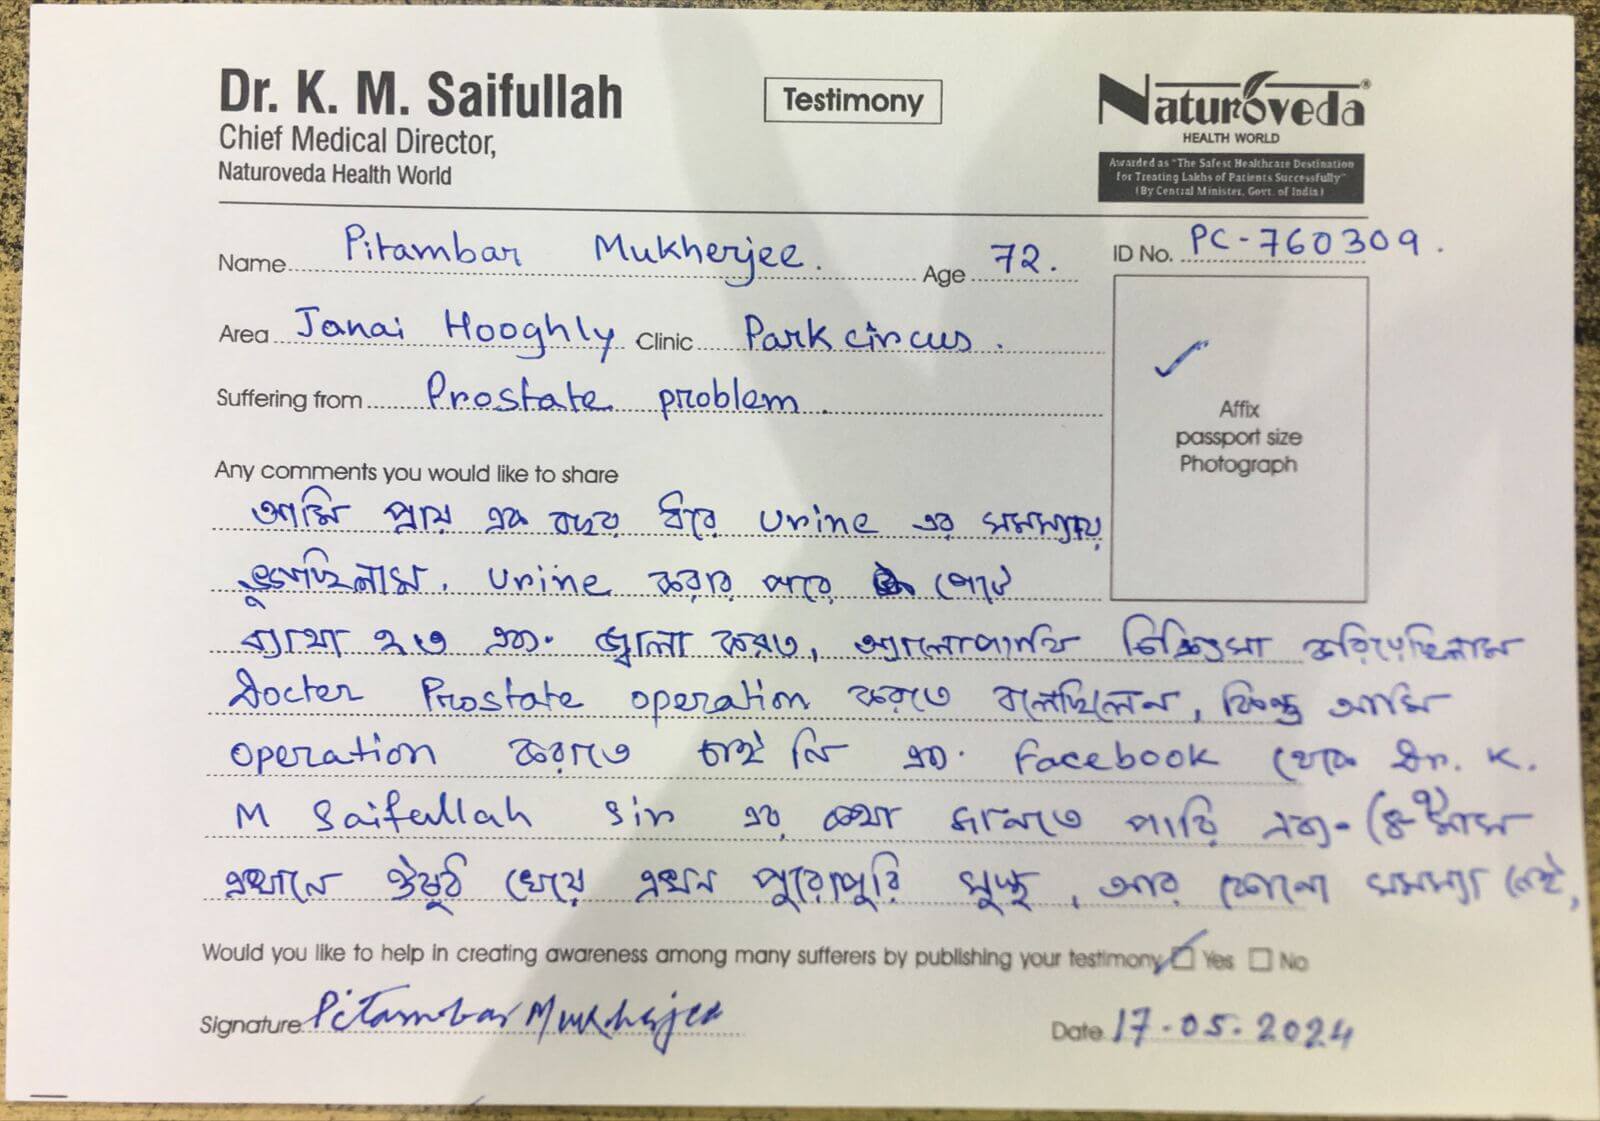 Dr. K. M. Saifullah
Chief Medical Director,
Naturoveda Health World
Testimony
Naturoveda®
HEALTH WORLD
Awarded as "The Safest Healthcare Destination
for Treating Lakhs of Patients Successfully"
(By Central Minister, Govt. of India)
Name Pitambar Mukherjee. Age 72. ID No. PC-760309.
Area Janai Hooghly Clinic Park circus.
Suffering from Prostate problem
Affix
passport size
Photograph
Any comments you would like to share
আমি প্রায় এক বছর ধরে urine এর সমস্যায়
ভুগেছিলাম. urine করার পরে পেটে
ব্যাথা হত এবং জ্বালা করত, অ্যালোপাথি চিকিৎসা করিয়েছিলাম
Docter Prostate operation করতে বলেছিলেন, কিন্তু আমি
operation করাতে চাই নি এবং Facebook থেকে Dr. K.
M Saifullah Sir এর কথা জানতে পারি এবং মাস
এখানে ঔষুঠ খেয়ে এখন পুরোপুরি সুস্থ, আর কোনো সমস্যা নেই,
Would you like to help in creating awareness among many sufferers by publishing your testimony Yes No
Signature Pitambar Mukherjee Date 17.05.2024